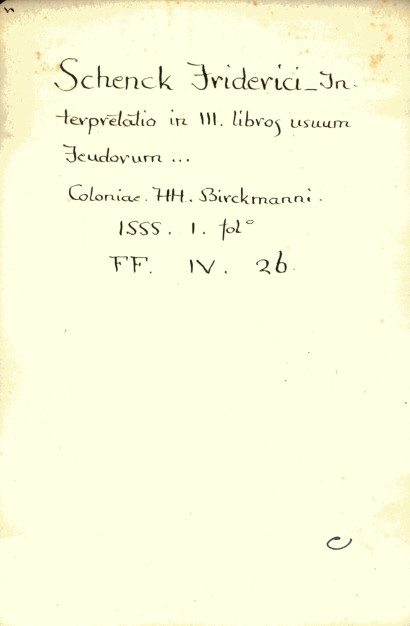 Schenck Friderici_In-
terpretatio in III. libros usuum
Feudorum ...
Coloniae. HH. Birckmanni.
1555. 1. fol°
FF. IV. 26.